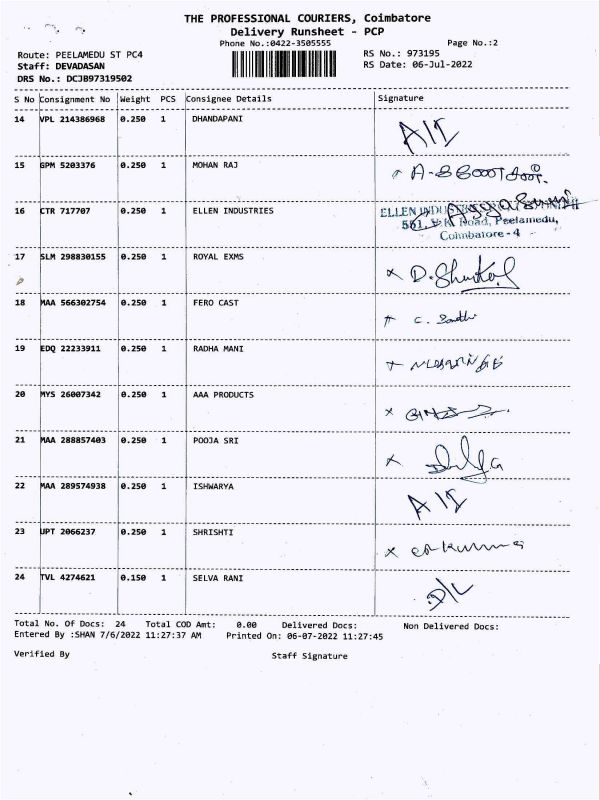 THE PROFESSIONAL COURIERS, Coimbatore
Delivery Runsheet - PCP
Phone No.:0422-3505555 Page No.:2
Route: PEELAMEDU ST PC4 RS No.: 973195
Staff: DEVADASAN RS Date: 06-Jul-2022
DRS No.: DCJB97319502
S No Consignment No Weight PCS Consignee Details Signature
14 VPL 214386968 0.250 1 DHANDAPANI
15 GPM 5203376 0.250 1 MOHAN RAJ
16 CTR 717707 0.250 1 ELLEN INDUSTRIES ELLEN
551, Road, Peelamedu,
Coimbatore - 4
17 SLM 298830155 0.250 1 ROYAL EXMS
18 MAA 566302754 0.250 1 FERO CAST
19 EDQ 22233911 0.250 1 RADHA MANI
20 MYS 26007342 0.250 1 AAA PRODUCTS
21 MAA 288857403 0.250 1 POOJA SRI
22 MAA 289574938 0.250 1 ISHWARYA
23 UPT 2066237 0.250 1 SHRISHTI
24 TVL 4274621 0.150 1 SELVA RANI
Total No. Of Docs: 24 Total COD Amt: 0.00 Delivered Docs: Non Delivered Docs:
Entered By :SHAN 7/6/2022 11:27:37 AM Printed On: 06-07-2022 11:27:45
Verified By Staff Signature